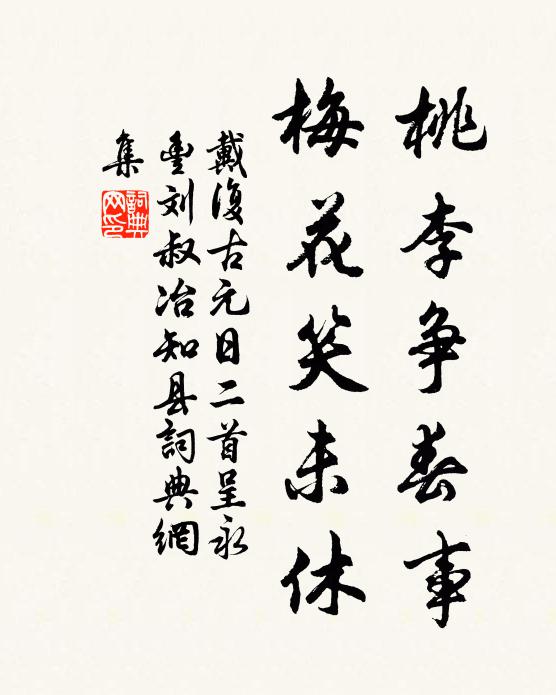 桃李争春事
梅花笑未休
戴復古元日二首呈永
豊刘叔冶知县詞典網
集
詞典
网印